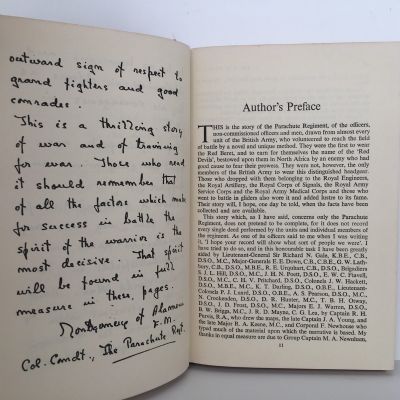 outward sign of respect to
grand fighters and good
comrades.
This is a thrilling story
of war and of training
for war. Those who read
it should remember that
of all the factors which make
for success in battle the
spirit of the warrior is the
most decisive. That spirit
will be found in full
measure in these pages.
Montgomery of Alamein
F.M.
Col. Comdt., The Parachute Regt.
Author's Preface
THIS is the story of the Parachute Regiment, of the officers,
non-commissioned officers and men, drawn from almost every
unit of the British Army, who volunteered to reach the field
of battle by a novel and unique method. They were the first to wear
the Red Beret, and to earn for themselves the name of the 'Red
Devils', bestowed upon them in North Africa by an enemy who had
good cause to fear their prowess. They were not, however, the only
members of the British Army to wear this distinguished headgear.
Those who dropped with them belonging to the Royal Engineers,
the Royal Artillery, the Royal Corps of Signals, the Royal Army
Service Corps and the Royal Army Medical Corps and those who
went to battle in gliders also wore it and added lustre to its fame.
Their story will, I hope, one day be told, when the facts have been
collected and are available.
This story which, as I have said, concerns only the Parachute
Regiment, does not pretend to be complete, for it does not record
every single deed performed by the units and individual members of
the regiment. As one of its officers said to me when I was writing
it, 'I hope your record will show what sort of people we were'. I
have tried to do so, and in this honourable task I have been greatly
aided by Lieutenant-General Sir Richard N. Gale, K.B.E., C.B.,
D.S.O., M.C., Major-Generals E. E. Down, C.B., C.B.E., G. W. Lath-
bury, C.B., D.S.O., M.B.E., R. E. Urquhart, C.B., D.S.O., Brigadiers
S. J. L. Hill, D.S.O., M.C., J. H. N. Poett, D.S.O., E. W. C. Flavell,
D.S.O., M.C., C. H. V. Pritchard, D.S.O., Colonels J. W. Hackett,
D.S.O., M.B.E., M.C., K. T. Darling, D.S.O., O.B.E., Lieutenant-
Colonels P. J. Luard, D.S.O., O.B.E., A. S. Pearson, D.S.O., M.C.,
N. Crookenden, D.S.O., D. R. Hunter, M.C., T. B. H. Otway,
D.S.O., J. D. Frost, D.S.O., M.C., Majors E. J. Warren, D.S.O.,
B. W. Briggs, M.C., J. R. D. Mayne, C. G. Lea, by Captain R. H.
Parvis, R.A., who drew the maps, the late Captain J. A. Young, and
the late Major R. A. Keene, M.C., and Corporal F. Newhouse who
typed much of the material upon which the narrative is based. My
thanks in equal measure are due to Group Captain M. A. Newnham,
11